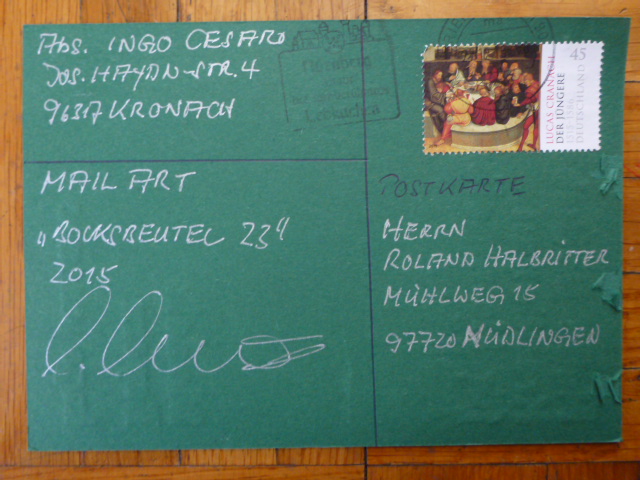 Abs. INGO CESARO
JOS. HAYDN-STR. 4
96317 KRONACH
45
LUCAS CRANACH
DER JÜNGERE
DEUTSCHLAND
MAIL ART
„BOCKSBEUTEL 23"
2015
POSTKARTE
HERRN
ROLAND HALBRITTER
MÜHLWEG 15
97720 NÜDLINGEN